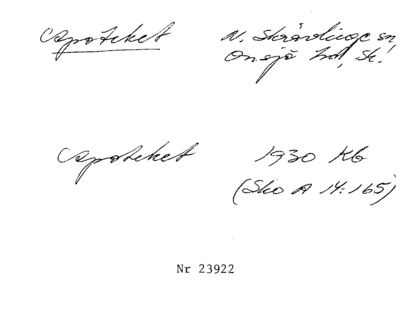 Apoteket N. Skrävlinge sn
Onsjö hd, Sk.
Apoteket 1930 Kb
(Sko A 14:165)
Nr 23922